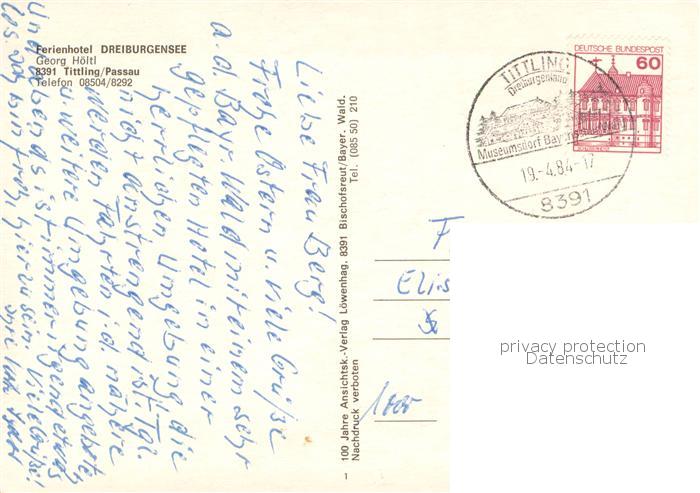 Ferienhotel DREIBURGENSEE
Georg Höltl
8391 Tittling/Passau
Telefon 08504/8292
Liebe Frau Berg!
Frohe Ostern u. viele Grüße
a. d. Bayr. Wald mit einem sehr
gepflegten Hotel in einer
herrlichen Umgebung die
nicht anstrengend ist. Tgl.
werden Fahrten i. d. nähere
u. weitere Umgebung angeboten,
und abends ist immer irgend etwas
los. bin froh hier zu sein. Viele Grüße!
Ihre
100 Jahre Ansichtsk.-Verlag Löwenhag, 8391 Bischofsreut/Bayer. Wald.
Nachdruck verboten Tel. (085 50) 210
1
TITTLING
Dreiburgenland
Museumsdorf Bayer.
19.-4.84-17
8391
DEUTSCHE BUNDESPOST
60
F
Elis
1000
privacy protection
Datenschutz